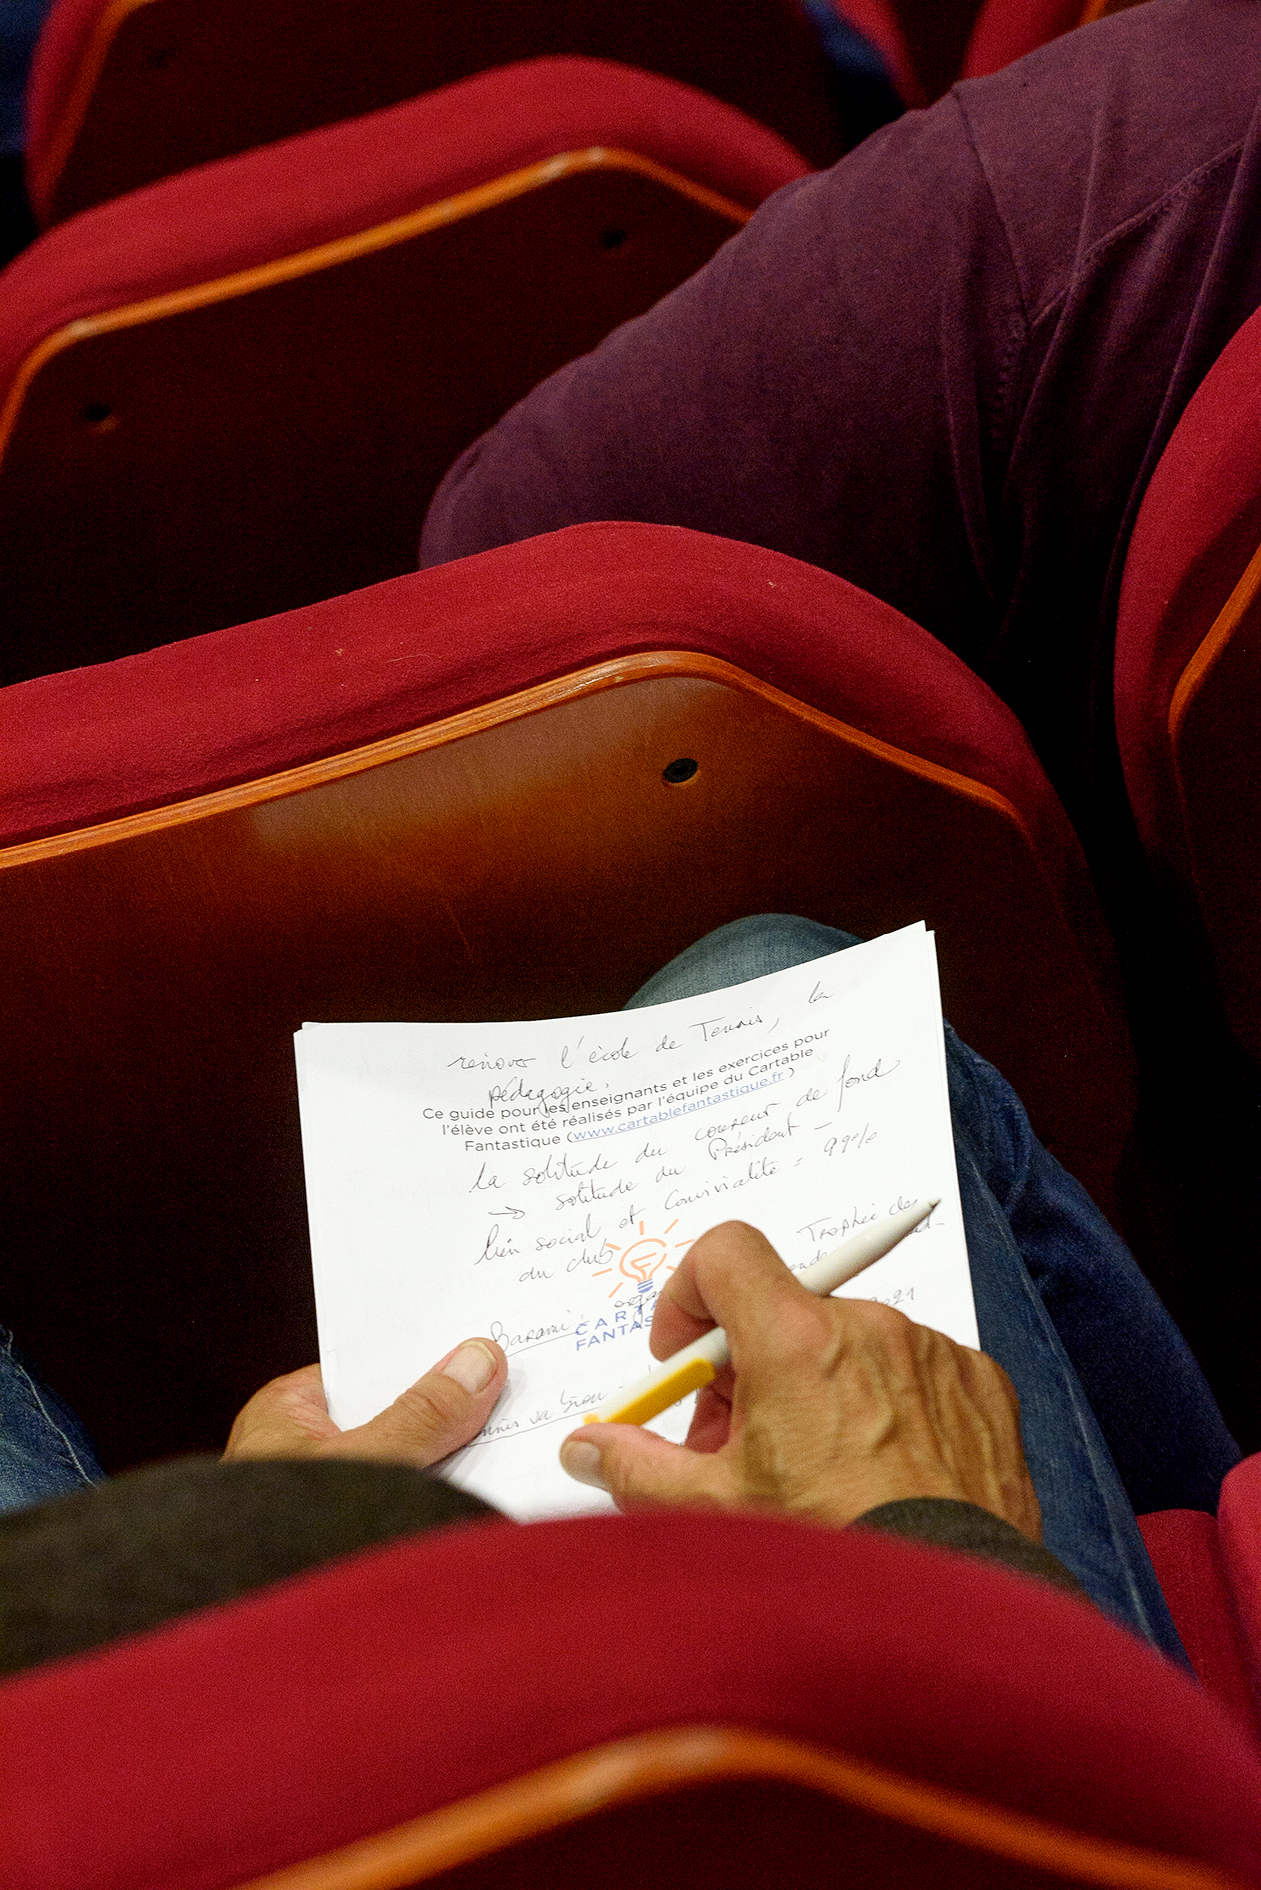 rénover l'école de Tennis, la
pédagogie.
Ce guide pour les enseignants et les exercices pour
l'élève ont été réalisés par l'équipe du Cartable
Fantastique (www.cartablefantastique.fr)
la solitude du coureur de fond
→ solitude du Président -
lien social et Convivialité = 99%
du club
Trophée des
2021
CARTA
FANTAS
va bien